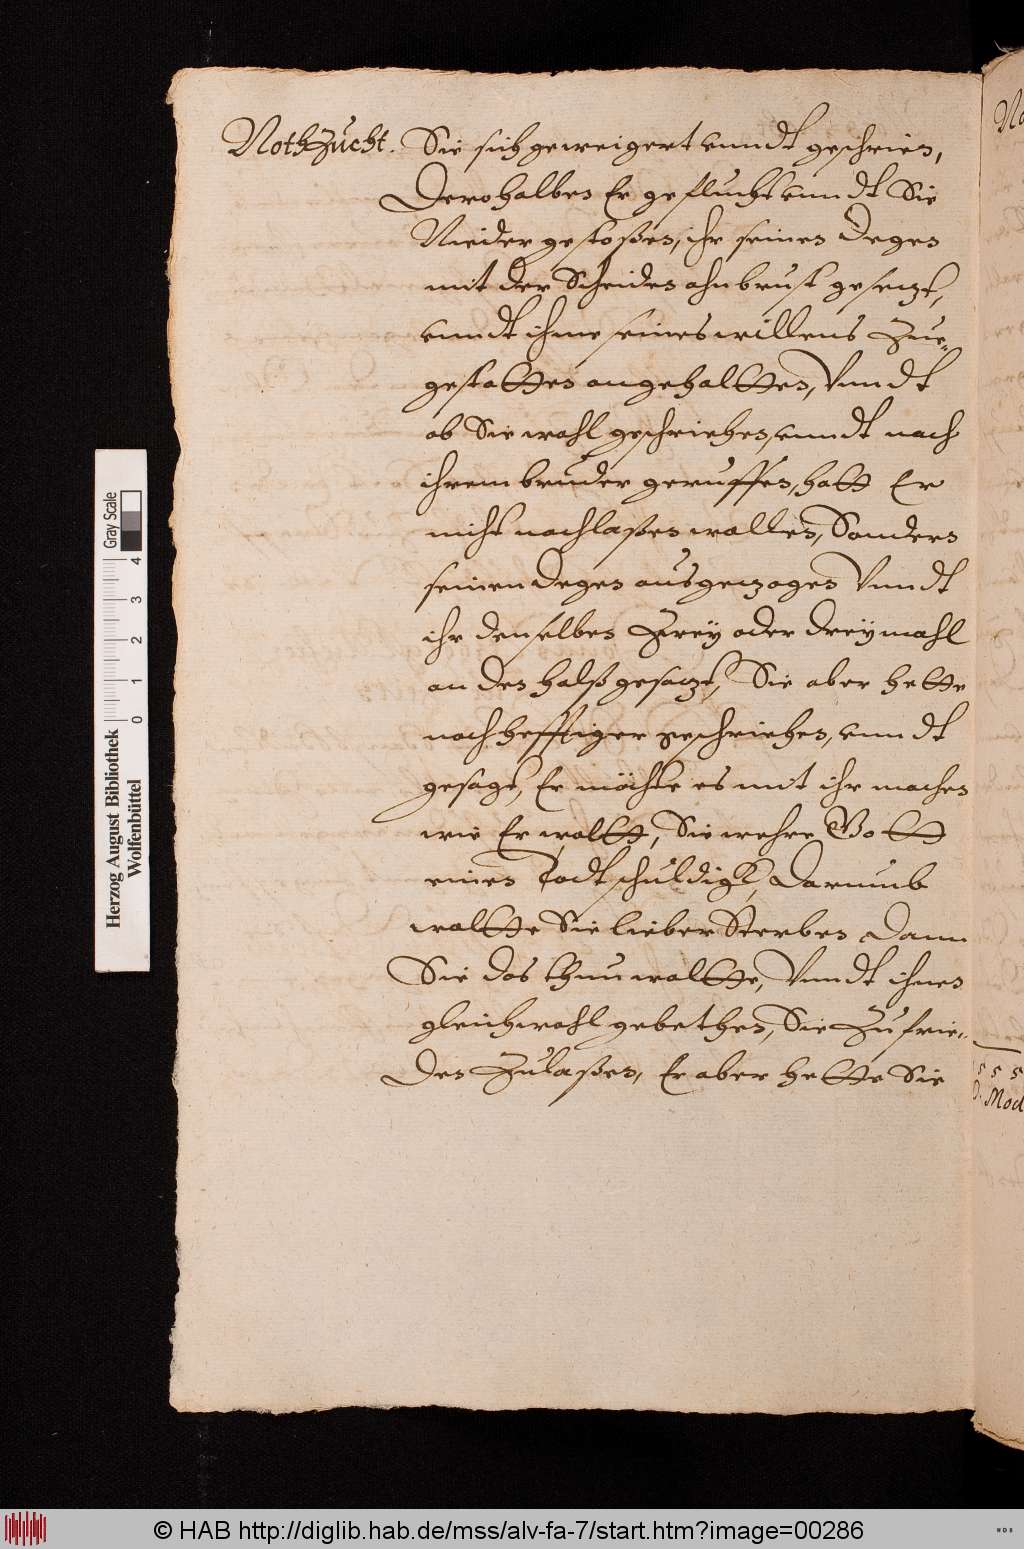 NothZücht. Sie sich geweigert vnndt geschrien,
Derohalben Er geflucht vnndt Sie
Nieder gestoßen, ihr seinen Degen
mit der Scheiden ahn brust gesetzt,
vnndt ihme seines willens Zue-
gestatten angehaltten, Vnndt
ob Sie wohl geschriehen, vnndt nach
ihrem bruder geruffen, hatt Er
nicht nachlaßen wollen, Sondern
seinen Degen ausgezogen Vnndt
ihr denselben Zwey oder dreymahl
an den halß gesatzt, Sie aber hette
noch hefftiger geschriehen, vnndt
gesagt, Er möchte es mit ihr machen
wie Er woltt, Sie wehre Gott
einen Todt schuldigk, Darumb
woltte Sie lieber Sterben Dann
Sie das thun woltte, Vnndt ihnen
gleichwohl gebethen, Sie Zu frie-
den Zulaßen, Er aber hette Sie
No
5 5 5
D. Mod
Gray Scale
0 1 2 3 4
Herzog August Bibliothek
Wolfenbüttel
© HAB http://diglib.hab.de/mss/alv-fa-7/start.htm?image=00286